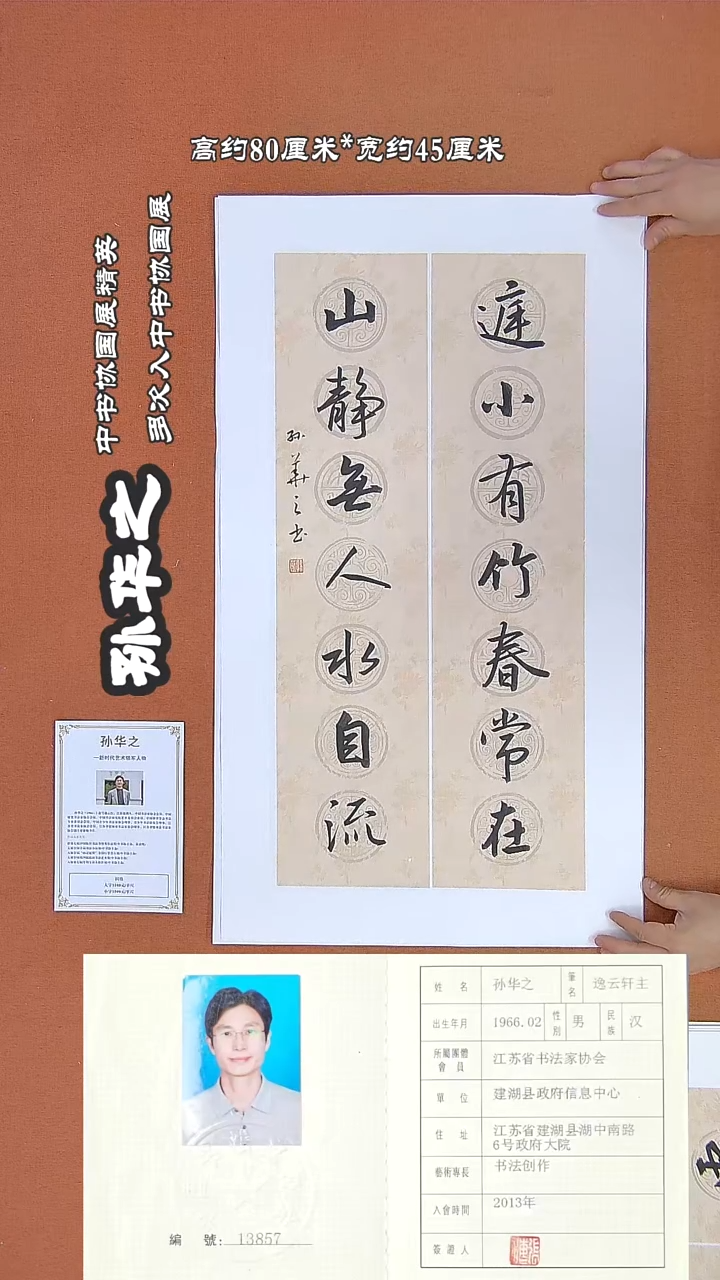 高约80厘米*宽约45厘米
多次入中书协国展
中书协国展精英
孙华之
庭小有竹春常在
山静無人水自流
孙華之书
孙华之
姓 名 孙华之 筆名 逸云轩主
出生年月 1966.02 性別 男 民族 汉
所屬團體會員 江苏省书法家协会
單 位 建湖县政府信息中心
住 址 江苏省建湖县湖中南路
6号政府大院
藝術專長 书法创作
入會時間 2013年
簽證人
編 號: 13857